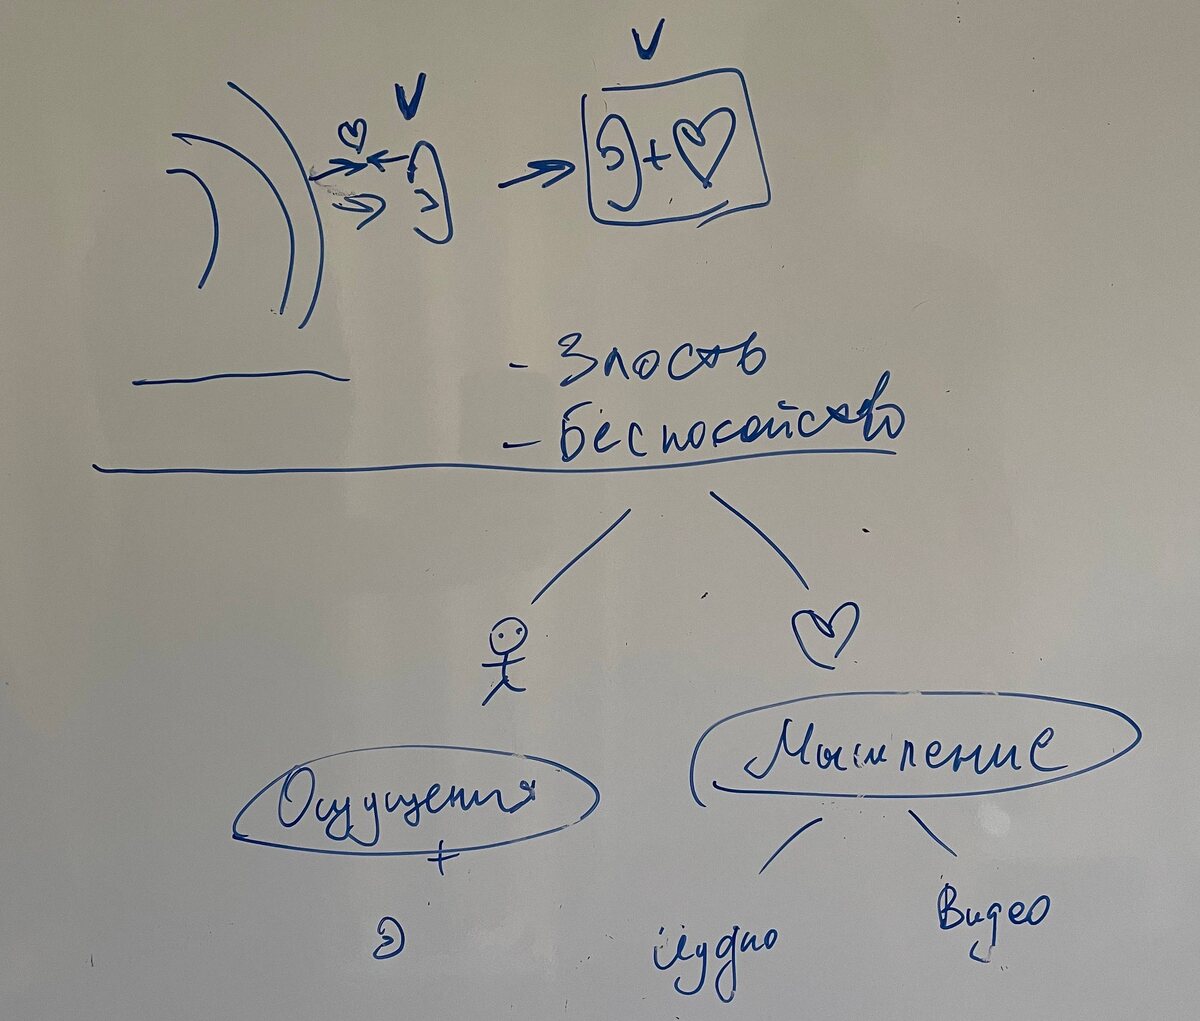 V
V
Э → Э + ♡
- Злость
- Беспокойство
Ощущения
Мышление
+
Э
Аудио
Видео